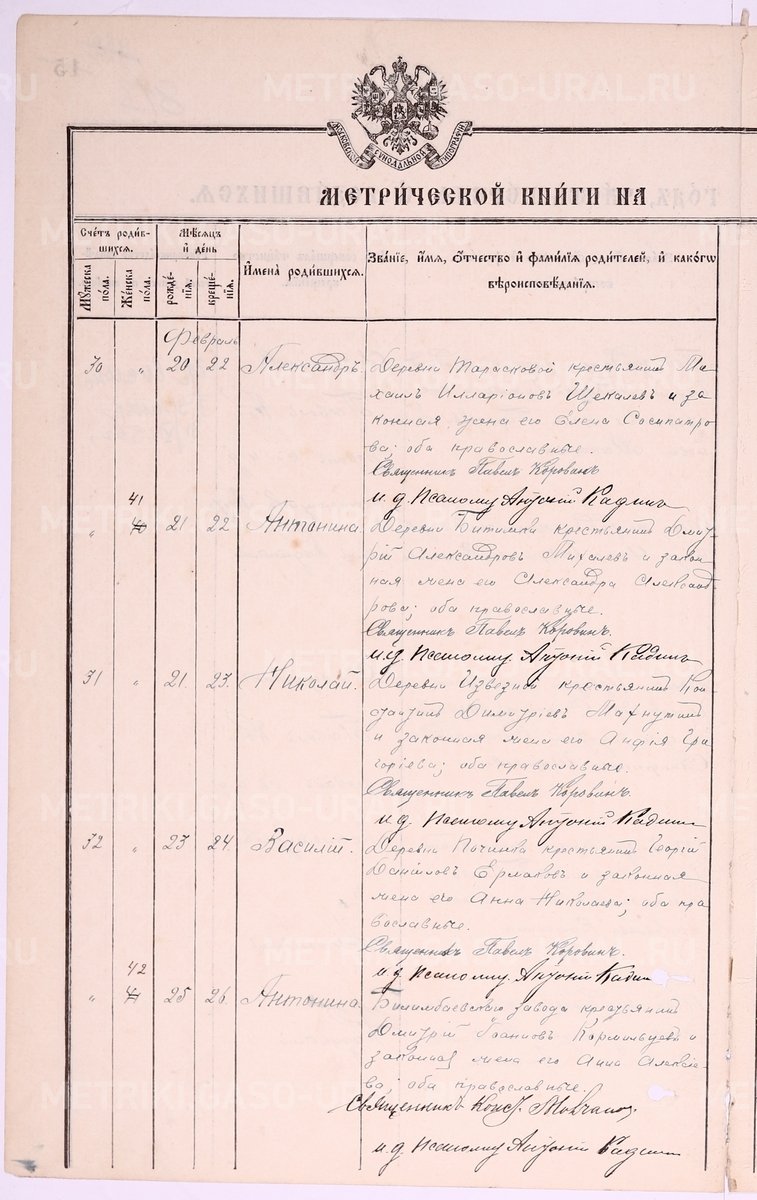 МОСКОВСКОЙ СѴНОДАЛЬНОЙ ТИПОГРАФІИ
МЕТРИ́ЧЕСКОЙ КНИ́ГИ НА
Сче́тъ роди́в-
шихся.
Мѣ́сяцъ
и де́нь
И́мена роди́вшихся.
Зва́ніе, и́мя, о́тчество и фами́лія роди́телей, и како́гѡ
вѣроисповѣ́данія.
Мꙋ́жеска
по́ла.
Же́нска
по́ла.
рожде́-
нія.
креще́-
нія.
Февраль
30 „ 20 22 Александръ. Деревни Тарасковой крестьянинъ Ми-
хаилъ Илларіоновъ Щекалевъ и за
конная жена его Елена Сосипатро
ва; оба православные.
Священникъ Павелъ Коровинъ
и.д. Псалому. Антоній Кадинъ
41
„ 40 21 22 Антонина. Деревни Битимки крестьянинъ Дми
рій Александровъ Михалевъ и закон
ная жена его Александра Александ
рова; оба православные.
Священникъ Павелъ Коровинъ.
и.д. Псалому. Антоній Кадинъ
31 „ 21. 23. Николай. Деревни Извезной крестьянинъ Кон
стантинъ Димитріевъ Махнуткинъ
и законная жена его Анфія Гри
горіева; оба православные.
Священникъ Павелъ Коровинъ.
и.д. Псалому. Антоній Кадинъ
32 „ 23 24. Василій. Деревни Починка крестьянинъ Георгій
Даниловъ Ермаковъ и законная
жена его Анна Николаева; оба пра
вославные.
Священникъ Павелъ Коровинъ.
и.д. Псалому. Антоній Кадинъ
42
„ 41 25 26. Антонина Билимбаевскаго завода крестьянинъ
Дмитрій Іоанновъ Кормильцевъ и
законная жена его Анна Алексѣе-
ва; оба православные.
Священникъ Конст.
и.д. Псалому Антоній Кадинъ